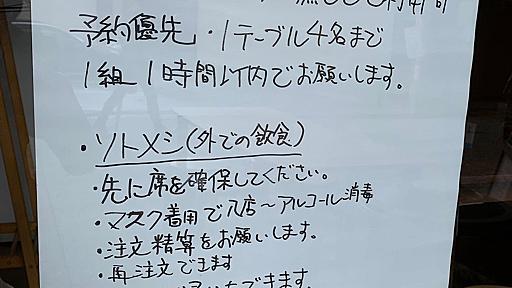 予約優先・1テーブル4名まで
1組1時間以内でお願いします。
・ソトメシ(外での飲食)
・先に席を確保してください。
・マスク着用で入店〜アルコール消毒
・注文精算をお願いします。
・再注文できます
できます。